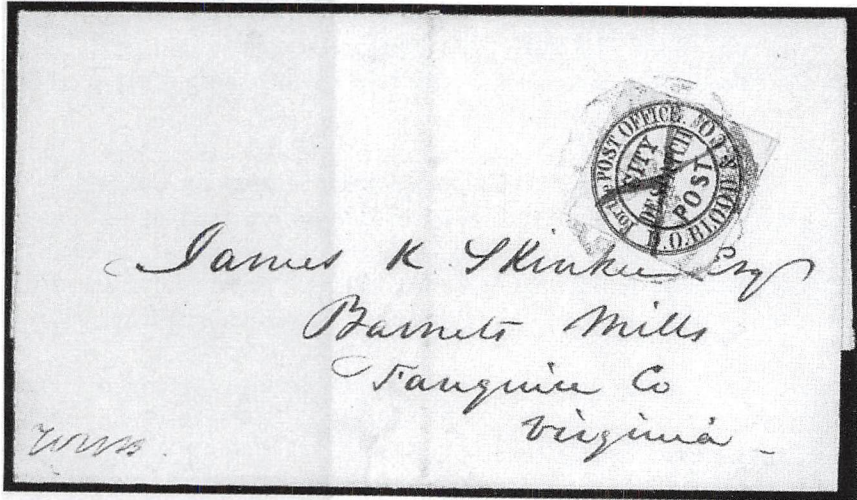 For the POST OFFICE.
D.O. BLOOD & CO.
CITY
DESPATCH
POST
James K Skinker Esq
Barnets Mills
Fauquier Co
Virginia